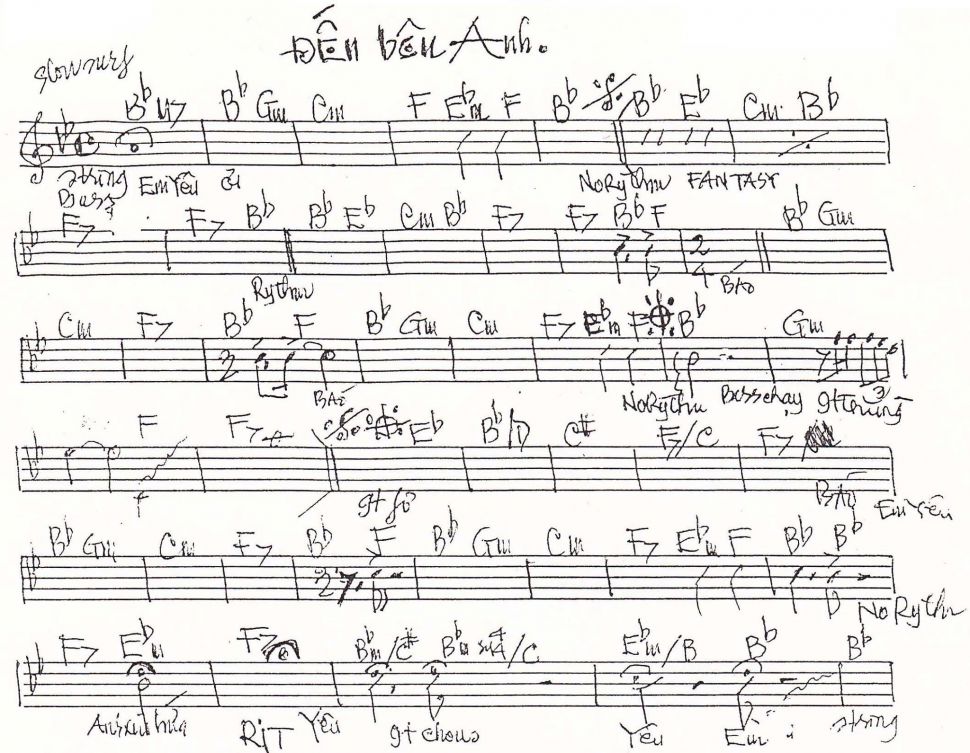 Đến bên Anh.
slow surf
Bb M7 Bb Gm Cm F Ebm F Bb Bb Eb Cm Bb
string Em Yêu ơi NoRythm FANTASY
Bass
F7 F7 Bb Bb Eb Cm Bb F7 F7 Bb F Bb Gm
2 4
Rythm BÁO
Cm F7 Bb F Bb Gm Cm F7 Ebm F Bb Gm
2 3
BÁO NoRythm Bass chạy gt
F F7 Eb Bb/D C# F/C F7
f gt BÁO Em yêu
Bb Gm Cm F7 Bb F Bb Gm Cm F7 Ebm F Bb Bb
2 NoRythm
F7 Ebm F7 Bbm/C# Bbm sus4/C Ebm/B Bb Bb
Anh xin hứa RIT Yêu gt Yêu Em string